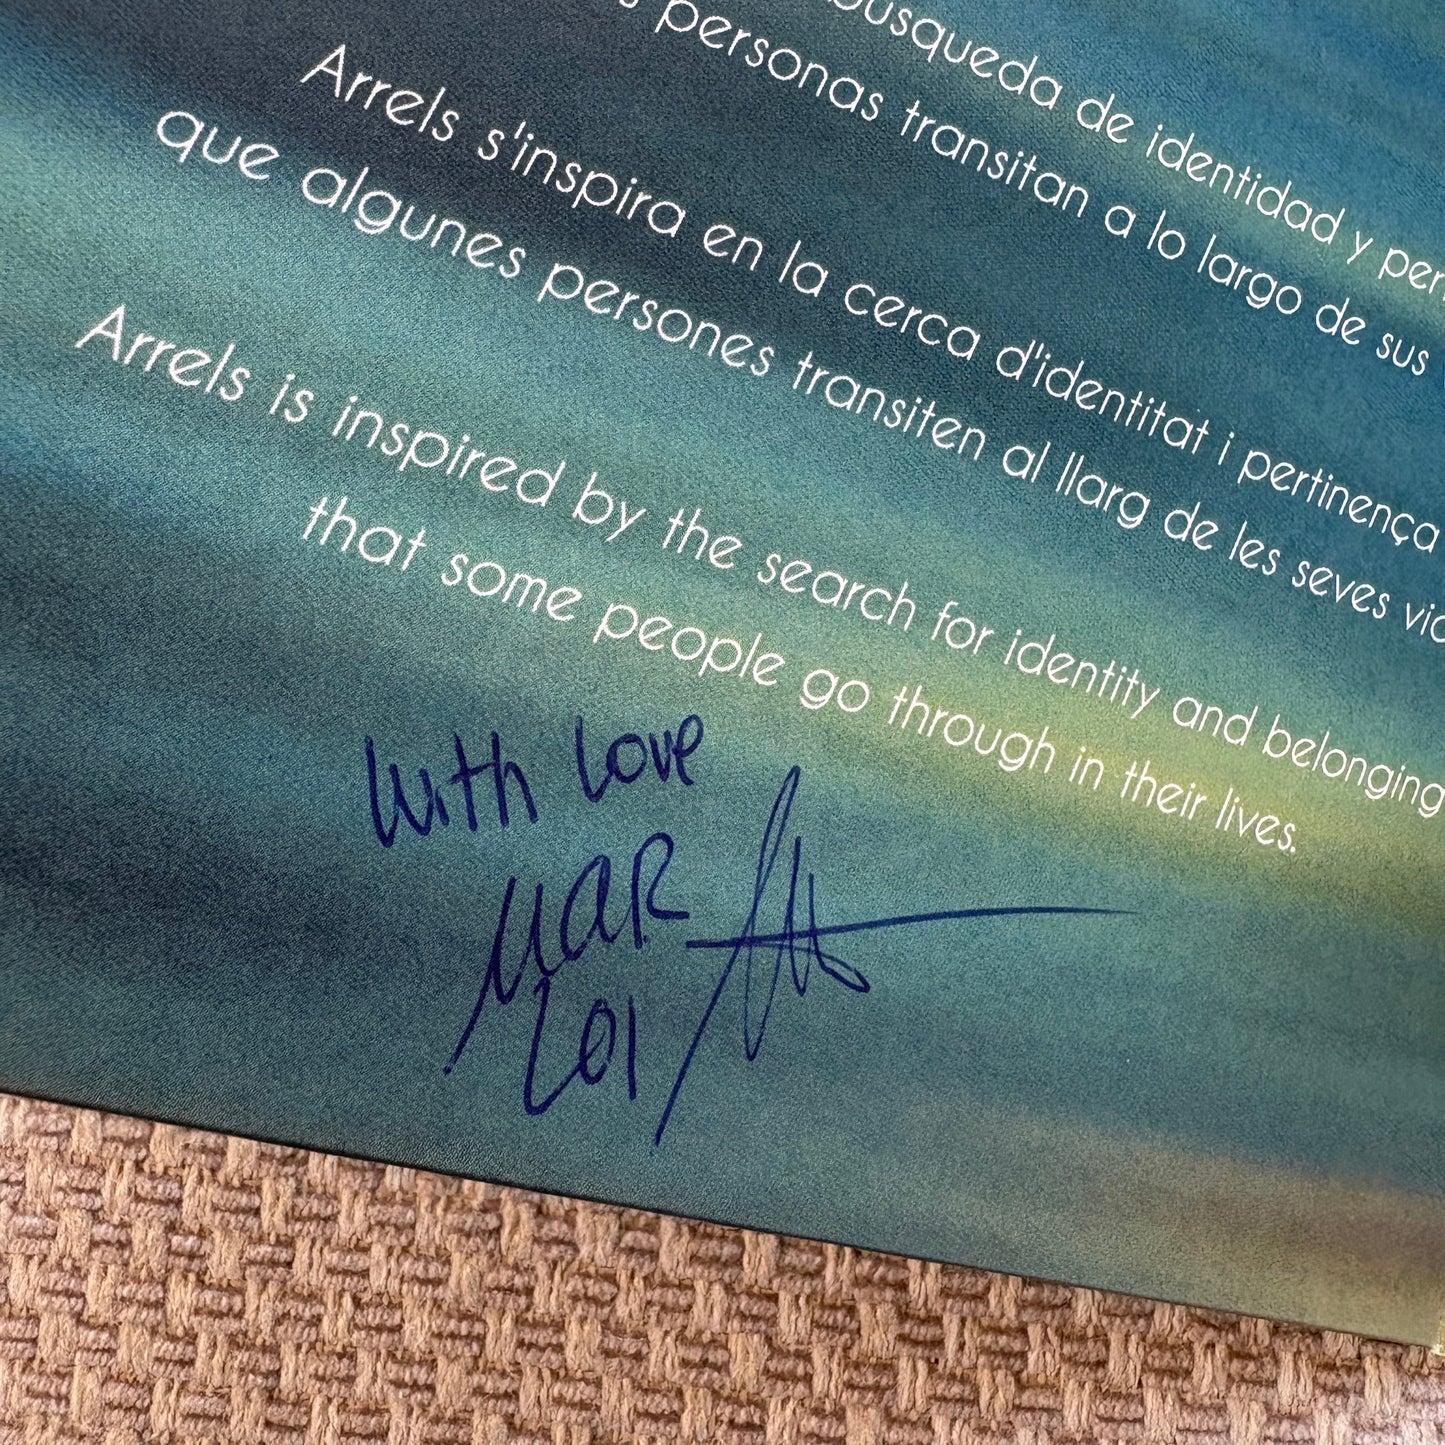 búsqueda de identidad y per
personas transitan a lo largo de sus
Arrels s'inspira en la cerca d'identitat i pertinença
que algunes persones transiten al llarg de les seves vid
Arrels is inspired by the search for identity and belonging
that some people go through in their lives.
With Love
MAR